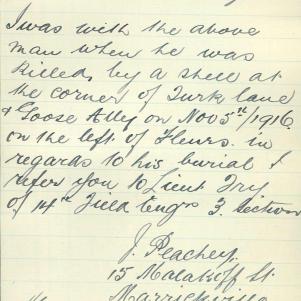 I was with the above
man when he was
killed, by a shell at
the corner of Turk lane
& Goose Alley on Nov 5th/1916.
on the left of Fleurs. in
regards to his burial I
refer you to Lieut Fry
of 14th Field Engrs 3. Section
J. Peachey.
15 Malakoff St
Marrickville